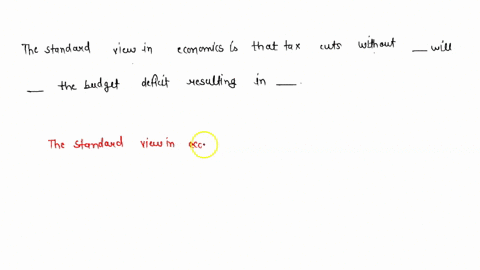 The standard view in economics is that tax cuts without __ will
__ the budget deficit resulting in __.
The standard view in ecc